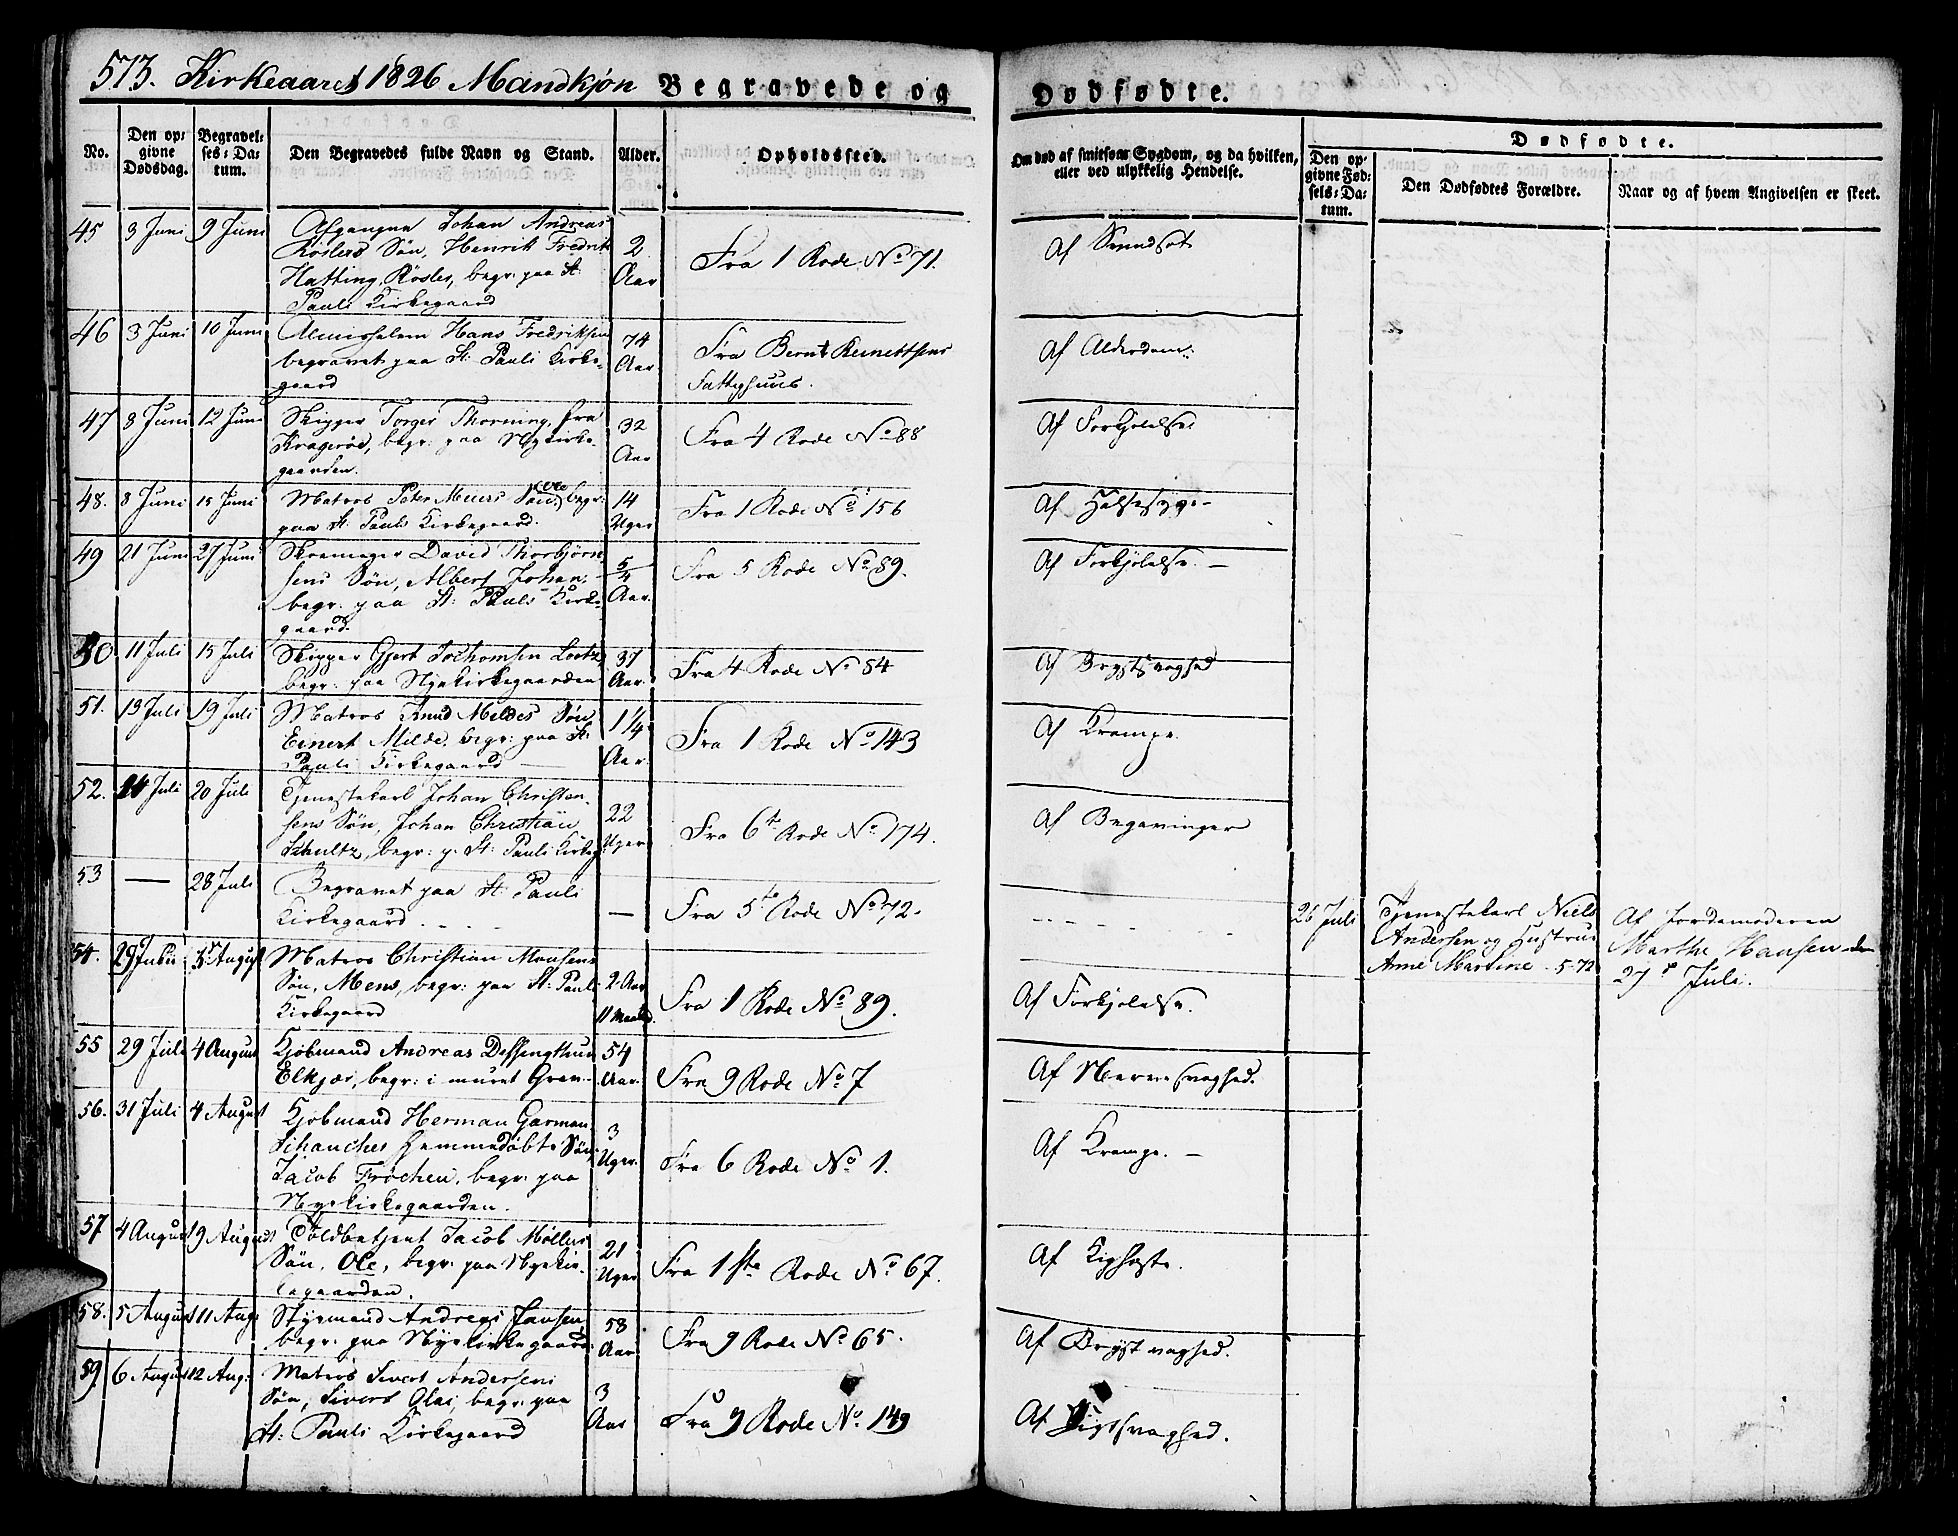 573. Kirkeaaret 1826 Mandkjøn Begravede og Dødfødte.
No.
Den opgivne Dødsdag.
Begravelses-Datum.
Den Begravedes fulde Navn og Stand.
Alder.
Opholdssted.
Om død af smitsom Sygdom, og da hvilken, eller ved ulykkelig Hendelse.
Dødfødte.
Den opgivne Fødsels-Datum.
Den Dødfødtes Forældre.
Naar og af hvem Angivelsen er skeet.
45 3 Juni 9 Juni Afgangne Johan Andreas
Røslers Søn, Henrik Fredrik
Hatting Røsler, begr: paa St.
Pauli Kirkegaard
2 Aar
Fra 1 Rode No 71.
Af
46 3 Juni 10 Juni Almisselem Hans Fredriksen
begravet paa St: Pauli Kirke-
gaard
74 Aar
Fra Bernt
Fattighuus.
Af Alderdom.
47 8 Juni 12 Juni Skipper Torger Thorning, fra
Kragerøe, begr: paa Nykirke-
gaarden.
32 Aar
Fra 4 Rode No 88
Af Forkjølelse
48. 8 Juni 15 Juni Matros Peter Meiers Søn, Ole begr:
paa St: Pauli Kirkegaard.
14 Uger
Fra 1 Rode No 156
Af Halsesyge
49 21 Juni 27 Juni Skomager David Thorbjørn
sens Søn, Albert Johan,
begr: paa St: Pauls Kirke
gaard.
5/4 Aar.
Fra 5 Rode No 89.
Af Forkjølelse. —
50. 11 Juli 15 Juli Skipper Gjert Jochomsen Lootz
begr: paa Nyekirkegaarden
37 Aar.
Fra 4 Rode No 54
Af Brystsvaghed
51. 13 Juli 19 Juli Matros Knud Mildes Søn
Einert Milde, begr: paa St:
Pauli Kirkegaard
1 1/4 Aar.
Fra 1 Rode No 143
Af Krampe.
52. 14 Juli 20 Juli Tjenestekarl Johan Christen-
sens Søn, Johan Christian
Schultz, begr: p. St: Pauli Kirkeg
22 Uger
Fra 6te Rode No 174.
Af Begavinger
53 — 28 Juli Begravet paa St: Pauli
Kirkegaard
—
Fra 5te Rode No 72.
26 Juli
Tjenestekarl Niels
Andersen og Hustrue
Anne Martine. 5-72
Af Jordemoderen
Marthe Hansen den
27de Juli.
54. 29 Juli 3 August Matros Christian Monsens
Søn, Mons, begr: paa St: Pauli
Kirkegaard
2 Aar 11 Maaned.
Fra 1 Rode No 89.
Af Forkjølelse.
55 29 Juli 4 August Kjøbmand Andreas Dessingthun
Elkjær, begr: i muret Grav
54 Aar.
Fra 9 Rode No 7
Af Nervesvaghed.
56. 31 Juli 4 August Kjøbmand Herman Garman
Schanches hjemmedøbte Søn
Jacob Frøchen, begr: paa
Nyekirkegaarden.
3 Uger.
Fra 6 Rode No 1.
Af Krampe. —
57 4 August 9 August Toldbetjent Jacob Møllers
Søn, Ole, begr: paa Nyekir-
kegaarden.
21 Uger
Fra 1ste Rode No 67.
Af Kighoste.
58. 5 August 11 Aug: Styrmand Andreas Jansen,
begr: paa Nyekirkegaard
58 Aar.
Fra 9 Rode No 65.
Af Brystsvaghed.
59. 6 August 12 Aug: Matros Sivert Andersens
Søn, Sivert Olai, begr: paa
St: Pauli Kirkegaard
3 Aar
Fra 9 Rode No 149
Af